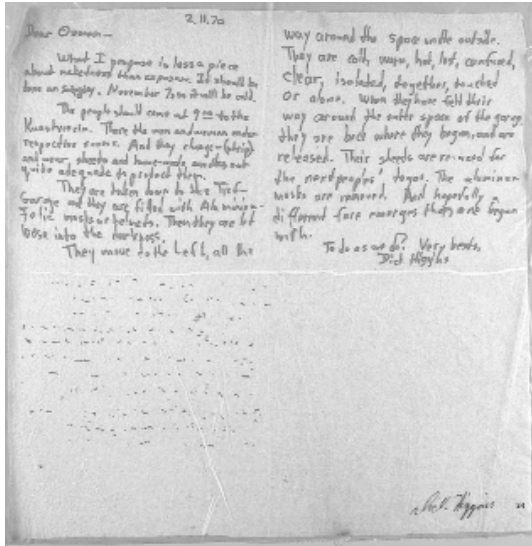 2.11.70
Dear
What I propose is less a piece
about nakedness than exposure. It should be
done on November 7, so it will be cold.
The people should come at 9 00 to the
Kunstverein. There the men and women
respective rooms. And they change (strip)
and wear, sheets and home-made
quite adequate to protect them.
They are taken down to the Tief-
Garage and they are fitted with Aluminium-
Folie masks or helmets. Then they are let
loose into the darkness.
They move to the left, all the
way around the space outside.
They are cold, warm, hot, lost, confused,
clear, isolated, together, touched
or alone. When they have felt their
way around the outer space of the garage
they are back where they began, and are
released. Their sheets are re-used for
the next peoples' togas. The aluminum
masks are removed. And hopefully a
different face emerges than one began
with.
To do as we do? Very bests,
Dick Higgins
Dick Higgins